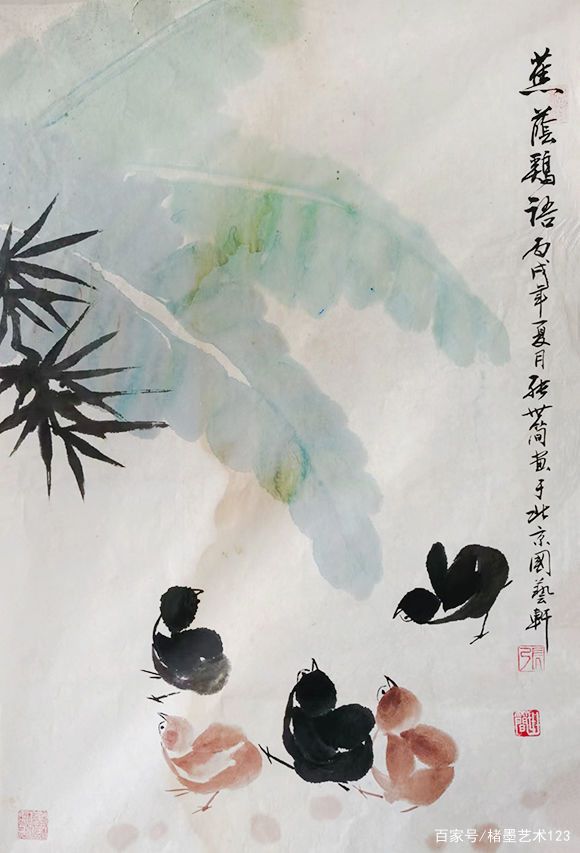 蕉蔭鷄语丙戌年夏月张世简画于北京國藝軒
百家号/楮墨艺术123